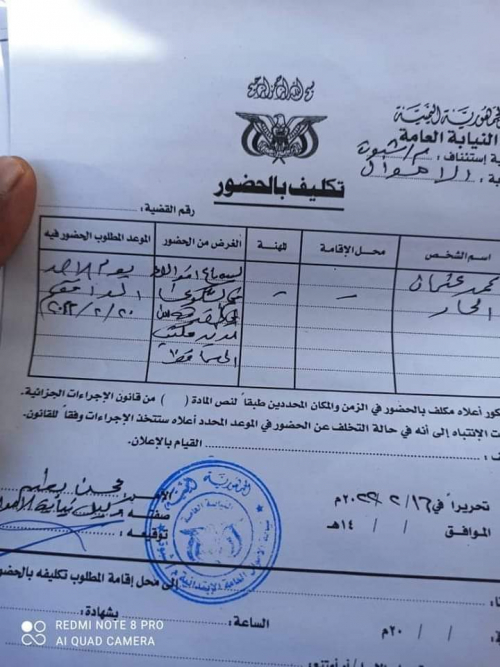 بسم الله الرحمن الرحيم
جمهورية اليمنية
النيابة العامة
ية إستئناف: م/شبوة
ية: الاموال
تكليف بالحضور
رقم القضية:
اسم الشخص
محل الإقامة
المهنة
الغرض من الحضور
الموعد المطلوب الحضور فيه
محمد عثمان
لسماع اقوالك
يوم الاحد
في الشكوى
الموافق
٢٠/٢/٢٠٢٢
مدير مكتب
كور أعلاه مكلف بالحضور في الزمن والمكان المحددين طبقاً لنص المادة ( ) من قانون الإجراءات الجزائية.
ت الإنتباه إلى أنه في حالة التخلف عن الحضور في الموعد المحدد أعلاه ستتخذ الإجراءات وفقاً للقانون.
ف: القيام بالإعلان.
تحريراً في ١٦/٢/٢٠٢٢م
الموافق / / ١٤هـ
صفته: وكيل نيابة الاموال
توقيعه:
الجمهورية اليمنية
النيابة العامة
إلى محل إقامة المطلوب تكليفه بالحضور
الساعة: بشهادة:
/ / ٢٠م
REDMI NOTE 8 PRO
AI QUAD CAMERA